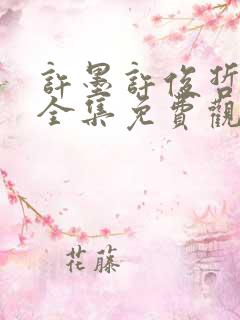 許墨許俊哲
全集免費觀
花藤